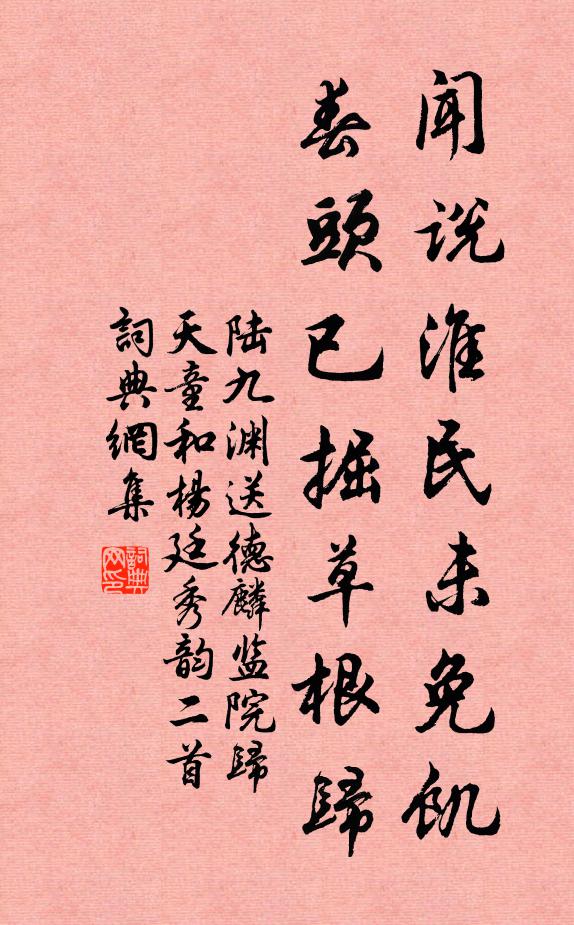 闻说淮民未免飢
春頭已掘草根歸
陆九渊送德麟监院歸
天童和楊廷秀韵二首
詞典網集
詞典网印